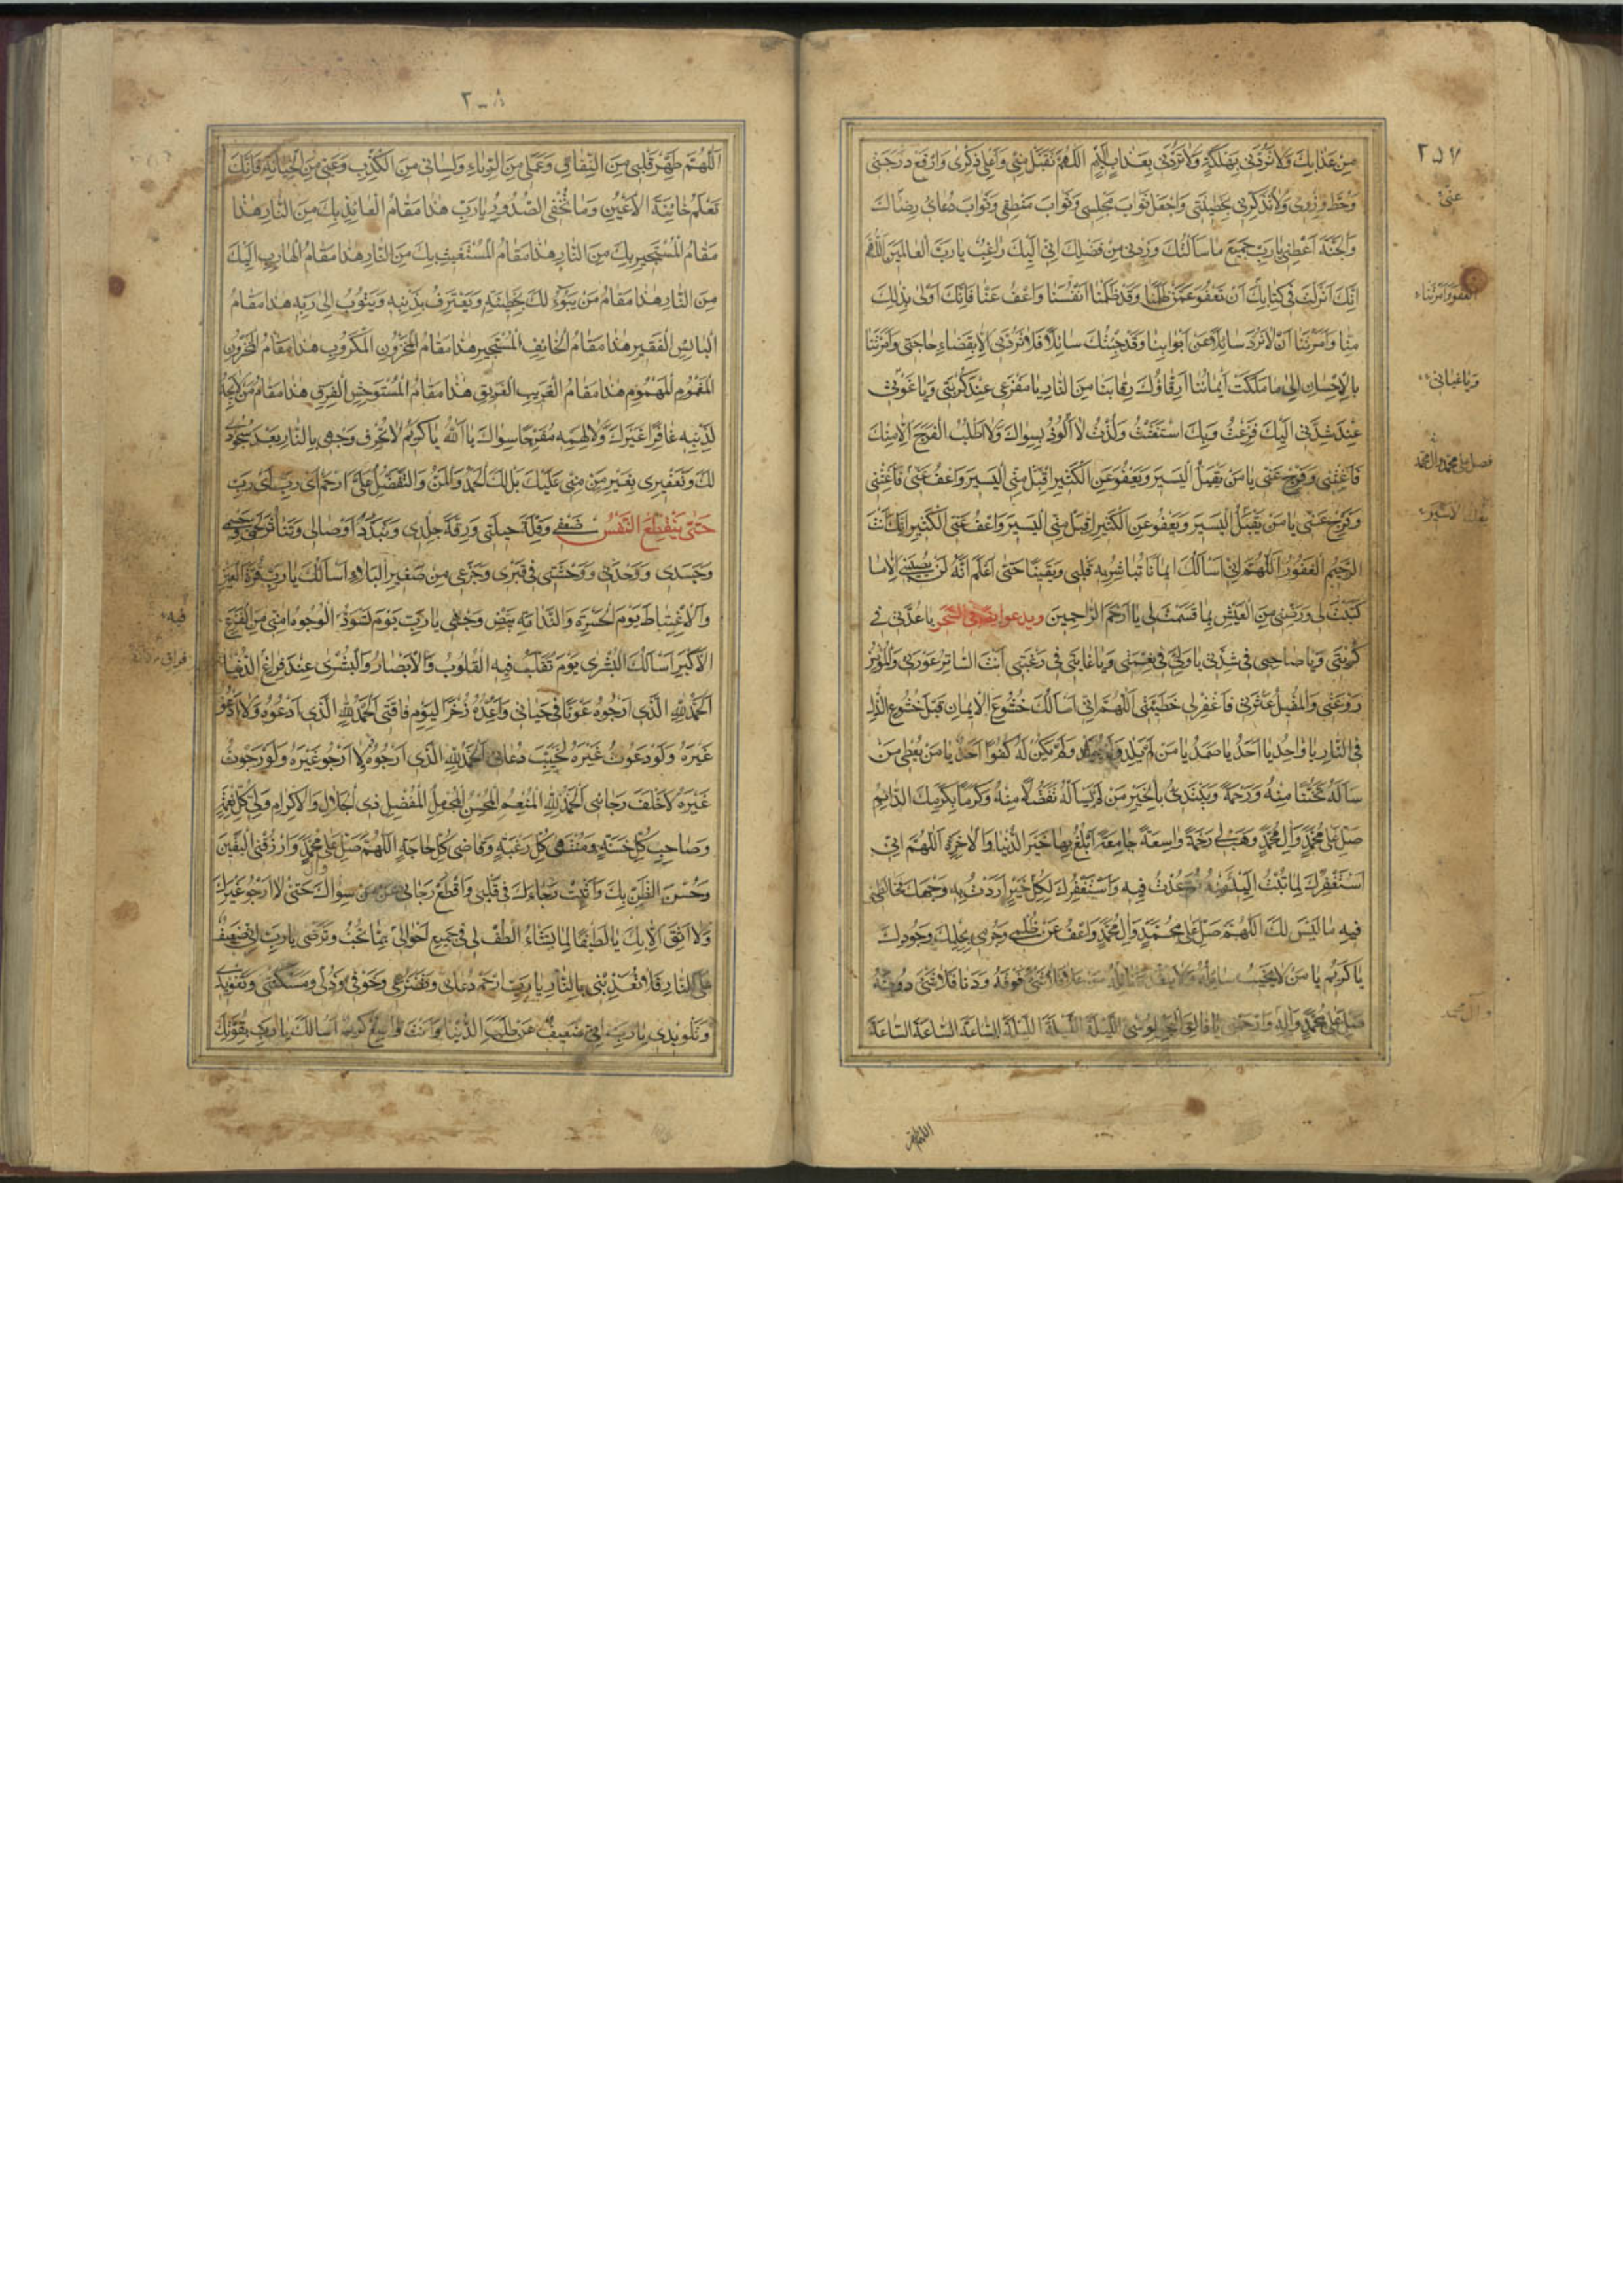 ٢٥٧
مِنْ عَذَابِكَ وَلَا تَرُدَّنِي بِهَلَكَةٍ وَلَا تَرُدَّنِي بِعَذَابٍ أَلِيمٍ اَللّٰهُمَّ تَقَبَّلْ مِنِّي وَأَعْلِ ذِكْرِي وَارْفَعْ دَرَجَتِي
وَحُطَّ وِزْرِي وَلَا تَذْكُرْنِي بِخَطِيئَتِي وَاجْعَلْ ثَوَابَ مَجْلِسِي وَثَوَابَ مَنْطِقِي وَثَوَابَ دُعَائِي رِضَاكَ
عَنِّي
وَالْجَنَّةَ أَعْطِنِي يَا رَبِّ جَمِيعَ مَا سَأَلْتُكَ وَزِدْنِي مِنْ فَضْلِكَ إِنِّي إِلَيْكَ رَاغِبٌ يَا رَبَّ الْعَالَمِينَ اَللّٰهُمَّ
إِنَّكَ أَنْزَلْتَ فِي كِتَابِكَ أَنْ نَعْفُوَ عَمَّنْ ظَلَمَنَا وَقَدْ ظَلَمْنَا أَنْفُسَنَا وَاعْفُ عَنَّا فَإِنَّكَ أَوْلَى بِذٰلِكَ
العفو وامرتنا
مِنَّا وَأَمَرْتَنَا أَنْ لَا نَرُدَّ سَائِلًا عَنْ أَبْوَابِنَا وَقَدْ جِئْتُكَ سَائِلًا فَلَا تَرُدَّنِي إِلَّا بِقَضَاءِ حَاجَتِي وَأَمَرْتَنَا
بِالْإِحْسَانِ إِلَى مَا مَلَكَتْ أَيْمَانُنَا أَرِقَّاؤُكَ رِقَابَنَا مِنَ النَّارِ يَا مَفْزَعِي عِنْدَ كُرْبَتِي وَيَا غَوْثِي
وَيا غياثي
عِنْدَ شِدَّتِي إِلَيْكَ فَزِعْتُ وَبِكَ اسْتَغَثْتُ وَلُذْتُ لَا أَلُوذُ بِسِوَاكَ وَلَا أَطْلُبُ الْفَرَجَ إِلَّا مِنْكَ
فصل على محمد وآل محمد
فَأَغِثْنِي وَفَرِّجْ عَنِّي يَا مَنْ يَقْبَلُ الْيَسِيرَ وَيَعْفُو عَنِ الْكَثِيرِ اقْبَلْ مِنِّي الْيَسِيرَ وَاعْفُ عَنِّي فَأَغِثْنِي
وَفَرِّجْ عَنِّي يَا مَنْ يَقْبَلُ الْيَسِيرَ وَيَعْفُو عَنِ الْكَثِيرِ اقْبَلْ مِنِّي الْيَسِيرَ وَاعْفُ عَنِّي الْكَثِيرَ إِنَّكَ أَنْتَ
الرَّحِيمُ الْغَفُورُ اَللّٰهُمَّ إِنِّي أَسْأَلُكَ إِيمَانًا تُبَاشِرُ بِهِ قَلْبِي وَيَقِينًا حَتّٰى أَعْلَمَ أَنَّهُ لَنْ يُصِيبَنِي إِلَّا مَا
كَتَبْتَ لِي وَرَضِّنِي مِنَ الْعَيْشِ بِمَا قَسَمْتَ لِي يَا أَرْحَمَ الرَّاحِمِينَ ويدعو ايضا في السحر يَا عُدَّتِي فِي
كُرْبَتِي وَيَا صَاحِبِي فِي شِدَّتِي يَا وَلِيِّي فِي نِعْمَتِي وَيَا غَايَتِي فِي رَغْبَتِي أَنْتَ السَّاتِرُ عَوْرَتِي وَالْمُؤْمِنُ
رَوْعَتِي وَالْمُقِيلُ عَثْرَتِي فَاغْفِرْ لِي خَطِيئَتِي اَللّٰهُمَّ إِنِّي أَسْأَلُكَ خُشُوعَ الْإِيمَانِ قَبْلَ خُشُوعِ الذُّلِّ
فِي النَّارِ يَا وَاحِدُ يَا أَحَدُ يَا صَمَدُ يَا مَنْ لَمْ يَلِدْ وَلَمْ يُولَدْ وَلَمْ يَكُنْ لَهُ كُفُوًا أَحَدٌ يَا مَنْ يُعْطِي مَنْ
سَأَلَهُ تَحَنُّنًا مِنْهُ وَرَحْمَةً وَيَبْتَدِئُ بِالْخَيْرِ مَنْ لَمْ يَسْأَلْهُ تَفَضُّلًا مِنْهُ وَكَرَمًا بِكَرَمِكَ الدَّائِمِ
صَلِّ عَلَى مُحَمَّدٍ وَآلِ مُحَمَّدٍ وَهَبْ لِي رَحْمَةً وَاسِعَةً جَامِعَةً أَبْلُغُ بِهَا خَيْرَ الدُّنْيَا وَالْآخِرَةِ اَللّٰهُمَّ إِنِّي
أَسْتَغْفِرُكَ لِمَا تُبْتُ إِلَيْكَ مِنْهُ ثُمَّ عُدْتُ فِيهِ وَأَسْتَغْفِرُكَ لِكُلِّ خَيْرٍ أَرَدْتُ بِهِ وَجْهَكَ فَخَالَطَنِي
فِيهِ مَا لَيْسَ لَكَ اَللّٰهُمَّ صَلِّ عَلَى مُحَمَّدٍ وَآلِ مُحَمَّدٍ وَاعْفُ عَنْ ظُلْمِي وَجُرْمِي بِحِلْمِكَ وَجُودِكَ
يَا كَرِيمُ يَا مَنْ لَا يَخِيبُ سَائِلُهُ وَلَا يَنْفَدُ نَائِلُهُ يَا مَنْ عَلَا فَلَا شَيْءَ فَوْقَهُ وَدَنَا فَلَا شَيْءَ دُونَهُ
صَلِّ عَلَى مُحَمَّدٍ وَآلِهِ وَارْحَمْنِي يَا فَالِقَ الْبَحْرِ لِمُوسَى اللَّيْلَةَ اللَّيْلَةَ اللَّيْلَةَ السَّاعَةَ السَّاعَةَ السَّاعَةَ
وآل محمد
اللهم طهر
اَللّٰهُمَّ طَهِّرْ قَلْبِي مِنَ النِّفَاقِ وَعَمَلِي مِنَ الرِّيَاءِ وَلِسَانِي مِنَ الْكَذِبِ وَعَيْنِي مِنَ الْخِيَانَةِ فَإِنَّكَ
تَعْلَمُ خَائِنَةَ الْأَعْيُنِ وَمَا تُخْفِي الصُّدُورُ يَا رَبِّ هٰذَا مَقَامُ الْعَائِذِ بِكَ مِنَ النَّارِ هٰذَا
مَقَامُ الْمُسْتَجِيرِ بِكَ مِنَ النَّارِ هٰذَا مَقَامُ الْمُسْتَغِيثِ بِكَ مِنَ النَّارِ هٰذَا مَقَامُ الْهَارِبِ إِلَيْكَ
مِنَ النَّارِ هٰذَا مَقَامُ مَنْ يَبُوءُ لَكَ بِخَطِيئَتِهِ وَيَعْتَرِفُ بِذَنْبِهِ وَيَتُوبُ إِلَى رَبِّهِ هٰذَا مَقَامُ
الْبَائِسِ الْفَقِيرِ هٰذَا مَقَامُ الْخَائِفِ الْمُسْتَجِيرِ هٰذَا مَقَامُ الْمَحْزُونِ الْمَكْرُوبِ هٰذَا مَقَامُ الْمَحْزُونِ
الْمَغْمُومِ الْمَهْمُومِ هٰذَا مَقَامُ الْغَرِيبِ الْغَرِيقِ هٰذَا مَقَامُ الْمُسْتَوْحِشِ الْفَرِقِ هٰذَا مَقَامُ مَنْ لَا يَجِدُ
لِذَنْبِهِ غَافِرًا غَيْرَكَ وَلَا لِهَمِّهِ مُفَرِّجًا سِوَاكَ يَا اَللّٰهُ يَا كَرِيمُ لَا تُحْرِقْ وَجْهِي بِالنَّارِ بَعْدَ سُجُودِي
لَكَ وَتَعْفِيرِي بِغَيْرِ مَنٍّ مِنِّي عَلَيْكَ بَلْ لَكَ الْحَمْدُ وَالْمَنُّ وَالتَّفَضُّلُ عَلَيَّ ارْحَمْ أَيْ رَبِّ أَيْ رَبِّ
حَتّٰى يَنْقَطِعَ النَّفَسُ ضَعْفِي وَقِلَّةَ حِيلَتِي وَرِقَّةَ جِلْدِي وَتَبَدُّدَ أَوْصَالِي وَتَنَاثُرَ لَحْمِي وَجِسْمِي
وَجَسَدِي وَوَحْدَتِي وَوَحْشَتِي فِي قَبْرِي وَجَزَعِي مِنْ صَغِيرِ الْبَلَاءِ أَسْأَلُكَ يَا رَبِّ قُرَّةَ الْعَيْنِ
وَالْاِغْتِبَاطَ يَوْمَ الْحَسْرَةِ وَالنَّدَامَةِ بَيِّضْ وَجْهِي يَا رَبِّ يَوْمَ تَسْوَدُّ الْوُجُوهُ آمِنِّي مِنَ الْفَزَعِ
فيه
الْأَكْبَرِ أَسْأَلُكَ الْبُشْرَى يَوْمَ تُقَلَّبُ فِيهِ الْقُلُوبُ وَالْأَبْصَارُ وَالْبُشْرَى عِنْدَ فِرَاغِ الدُّنْيَا
فراق
اَلْحَمْدُ لِلّٰهِ الَّذِي أَرْجُوهُ عَوْنًا فِي حَيَاتِي وَأُعِدُّهُ ذُخْرًا لِيَوْمِ فَاقَتِي اَلْحَمْدُ لِلّٰهِ الَّذِي أَدْعُوهُ وَلَا أَدْعُو
غَيْرَهُ وَلَوْ دَعَوْتُ غَيْرَهُ لَخَيَّبَ دُعَائِي اَلْحَمْدُ لِلّٰهِ الَّذِي أَرْجُوهُ وَلَا أَرْجُو غَيْرَهُ وَلَوْ رَجَوْتُ
غَيْرَهُ لَأَخْلَفَ رَجَائِي اَلْحَمْدُ لِلّٰهِ الْمُنْعِمِ الْمُحْسِنِ الْمُجْمِلِ الْمُفْضِلِ ذِي الْجَلَالِ وَالْإِكْرَامِ وَلِيِّ كُلِّ نِعْمَةٍ
وَصَاحِبِ كُلِّ حَسَنَةٍ وَمُنْتَهَى كُلِّ رَغْبَةٍ وَقَاضِي كُلِّ حَاجَةٍ اَللّٰهُمَّ صَلِّ عَلَى مُحَمَّدٍ وَارْزُقْنِي الْيَقِينَ
وآل
وَحُسْنَ الظَّنِّ بِكَ وَأَثْبِتْ رَجَاءَكَ فِي قَلْبِي وَاقْطَعْ رَجَائِي عَنْ مَنْ سِوَاكَ حَتّٰى لَا أَرْجُوَ غَيْرَكَ
وَلَا أَثِقَ إِلَّا بِكَ يَا لَطِيفًا لِمَا يَشَاءُ الْطُفْ لِي فِي جَمِيعِ أَحْوَالِي بِمَا تُحِبُّ وَتَرْضَى يَا رَبِّ إِنِّي ضَعِيفٌ
عَلَى النَّارِ فَلَا تُعَذِّبْنِي بِالنَّارِ يَا رَبِّ ارْحَمْ دُعَائِي وَتَضَرُّعِي وَخَوْفِي وَذُلِّي وَمَسْكَنَتِي وَتَعْوِيذِي
وَتَلْوِيذِي يَا رَبِّ إِنِّي ضَعِيفٌ عَنْ طَلَبِ الدُّنْيَا وَأَنْتَ وَاسِعٌ كَرِيمٌ أَسْأَلُكَ يَا رَبِّ بِقُوَّتِكَ